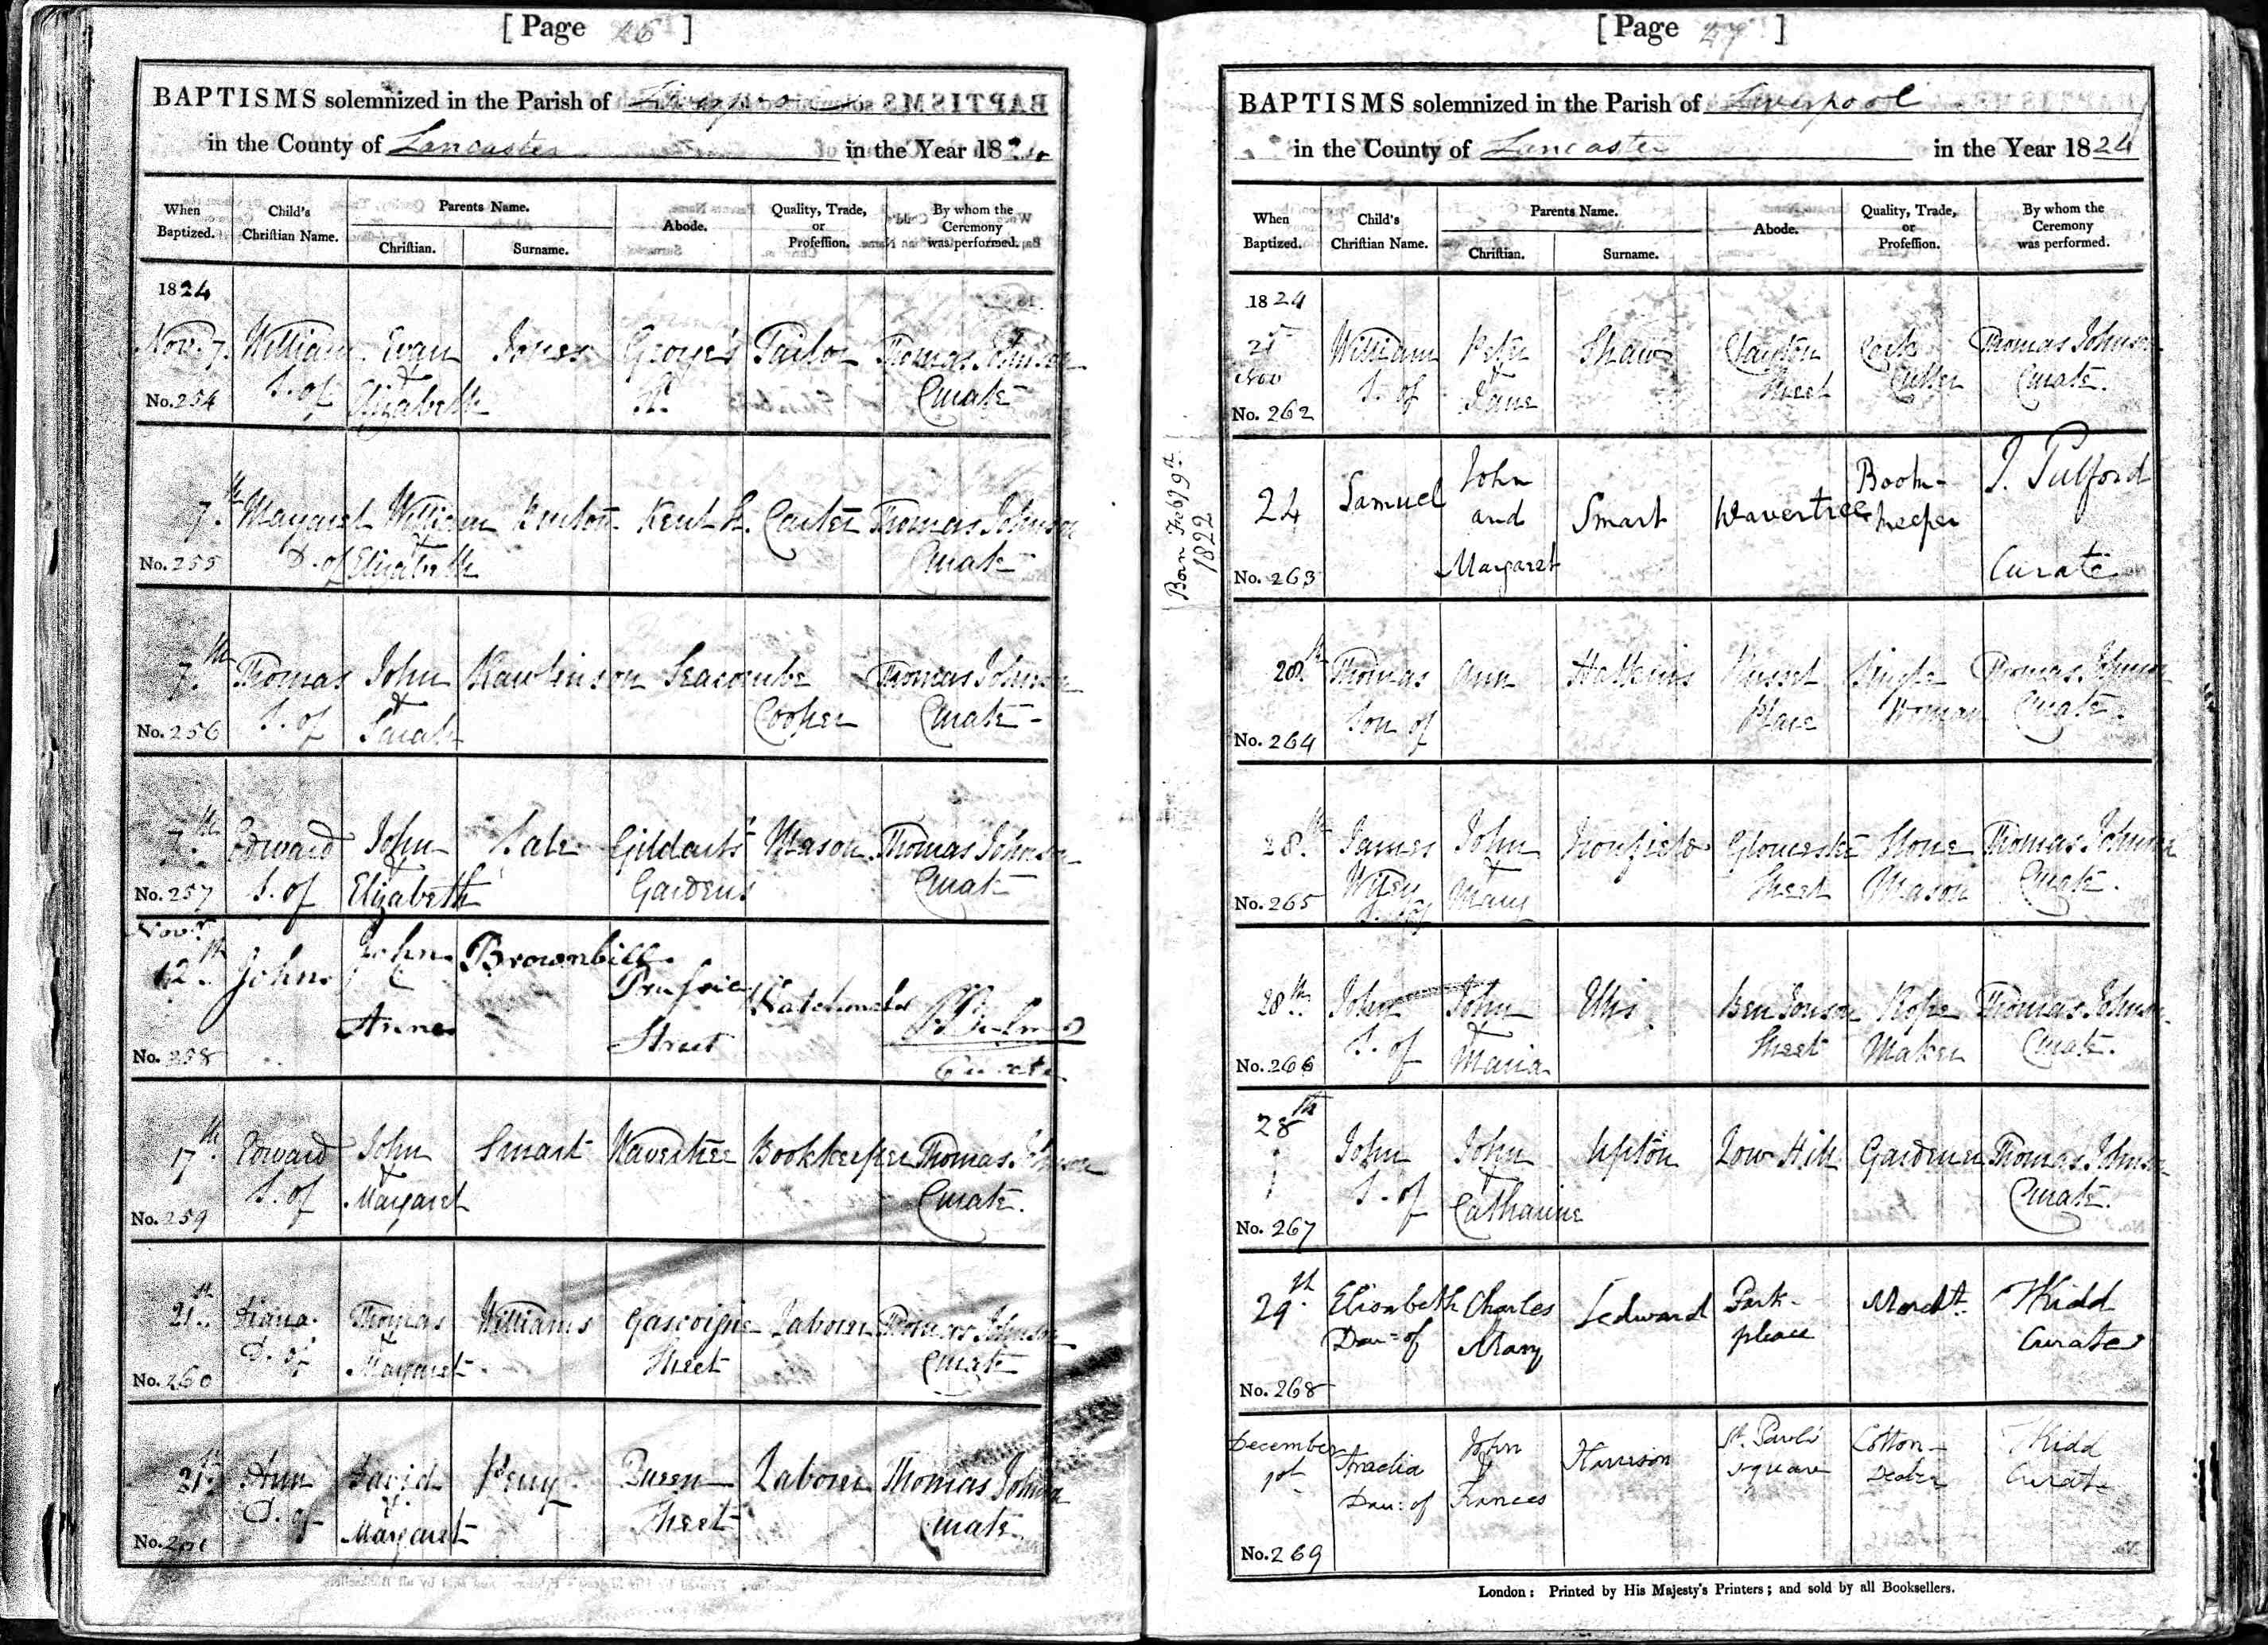 [ Page 26 ]
BAPTISMS solemnized in the Parish of Liverpool
in the County of Lancaster in the Year 1824
When Baptized.
Child's Christian Name.
Parents Name.
Christian.
Surname.
Abode.
Quality, Trade, or Profession.
By whom the Ceremony was performed.
1824
Nov. 7. William Evan Jones George's Tailor Thomas Johnson
S. of & Elizabeth St. Curate
No. 254
7th Margaret William Burton Kent St. Carter Thomas Johnson
D. of & Elizabeth Curate
No. 255
7th Thomas John Rawlinson Seacombe Thomas Johnson
S. of & Sarah Cooper Curate
No. 256
7th Edward John Sale Gildart's Mason Thomas Johnson
S. of & Elizabeth Gardens Curate
No. 257
Novr
12th John John Brownbill
& Prussia
Anne Street Curate
No. 258
17th Edward John Smart Wavertree Bookkeeper Thomas Johnson
S. of & Margaret Curate.
No. 259
21st Diana Thomas Williams Gascoigne Labourer Thomas Johnson
D. of & Margaret Street Curate
No. 260
21st Ann David Queen Labourer Thomas Johnson
D. of & Margaret Street Curate
No. 261
[ Page 27 ]
BAPTISMS solemnized in the Parish of Liverpool
in the County of Lancaster in the Year 1824
When Baptized.
Child's Christian Name.
Parents Name.
Christian.
Surname.
Abode.
Quality, Trade, or Profession.
By whom the Ceremony was performed.
1824
21st William Peter Shaw Clayton Cork Thomas Johnson
Nov S. of & Jane Street Cutter Curate.
No. 262
Born Feby 9th 1822
24 Samuel John and Margaret Smart Wavertree Book-keeper J. Pulford
Curate
No. 263
28th Thomas Ann Russel Single Thomas Johnson
Son of Place Woman Curate.
No. 264
28th James John Gloucester Stone Thomas Johnson
S. of & Mary Street Mason Curate.
No. 265
28th John John Ellis Ben Jonson Rope Thomas Johnson
S. of & Maria Street Maker Curate.
No. 266
28th
John John Upton Low Hill Gardener Thomas Johnson
S. of & Catharine Curate.
No. 267
29th Elisabeth Charles Ledward Park- Mercht. Kidd
Dau= of & Mary place Curate
No. 268
December John St. Paul's Cotton- Kidd
1st & Harrison square Dealer Curate
Dau: of Frances
No. 269
London: Printed by His Majesty's Printers; and sold by all Booksellers.